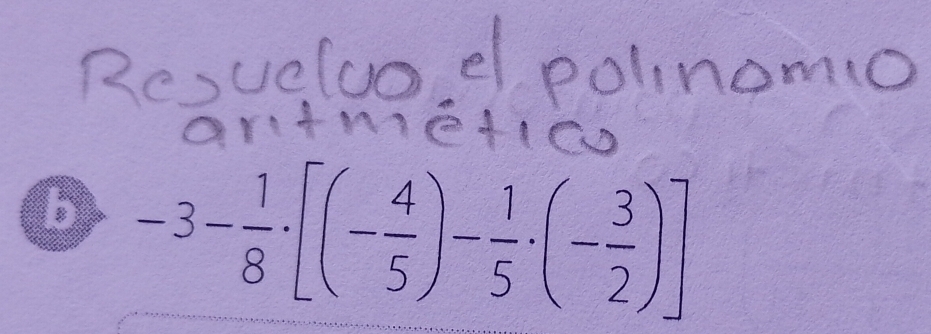 Resuelvo el polinomio
aritmético
b -3 - 1/8 · [(-4/5) - 1/5 · (-3/2)]